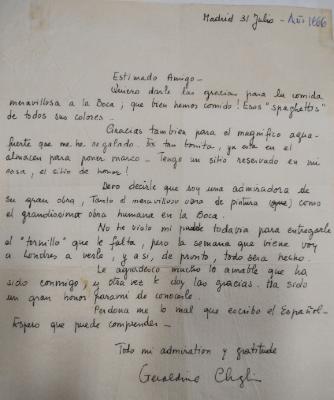 Madrid 31 Julio - Año 1966
Estimado Amigo -
Quiero darle las gracias para la comida
meravillosa a la Boca; que bien hemos comido! Esos "spaghettos"
de todos sus colores -
Gracias tambien para el magnífico agua-
fuerte que me ha regalado. Es tan bonito, ya esta en el
almacen para poner marco - Tengo un sitio reservado en mi
casa, el sitio de honor!
Debo decirle que soy una admiradora de
su gran obra, Tanto el meravilloso obra de pintura (que) como
el grandiosima obra humana en la Boca.
No he visto mi padre todavia para entregarle
el "tornillo" que le falta, pero la semana que viene voy
a Londres a verle, y asi, de pronto, todo sera hecho.
Le agradesco mucho lo amable que ha
sido conmigo, y otra vez le doy las gracias. Ha sido
un gran honor para mi de conocerle.
Perdona me lo mal que escribo el Español -
Espero que puede comprender -
Todo mi admiration y gratitude
Geraldine Chaplin